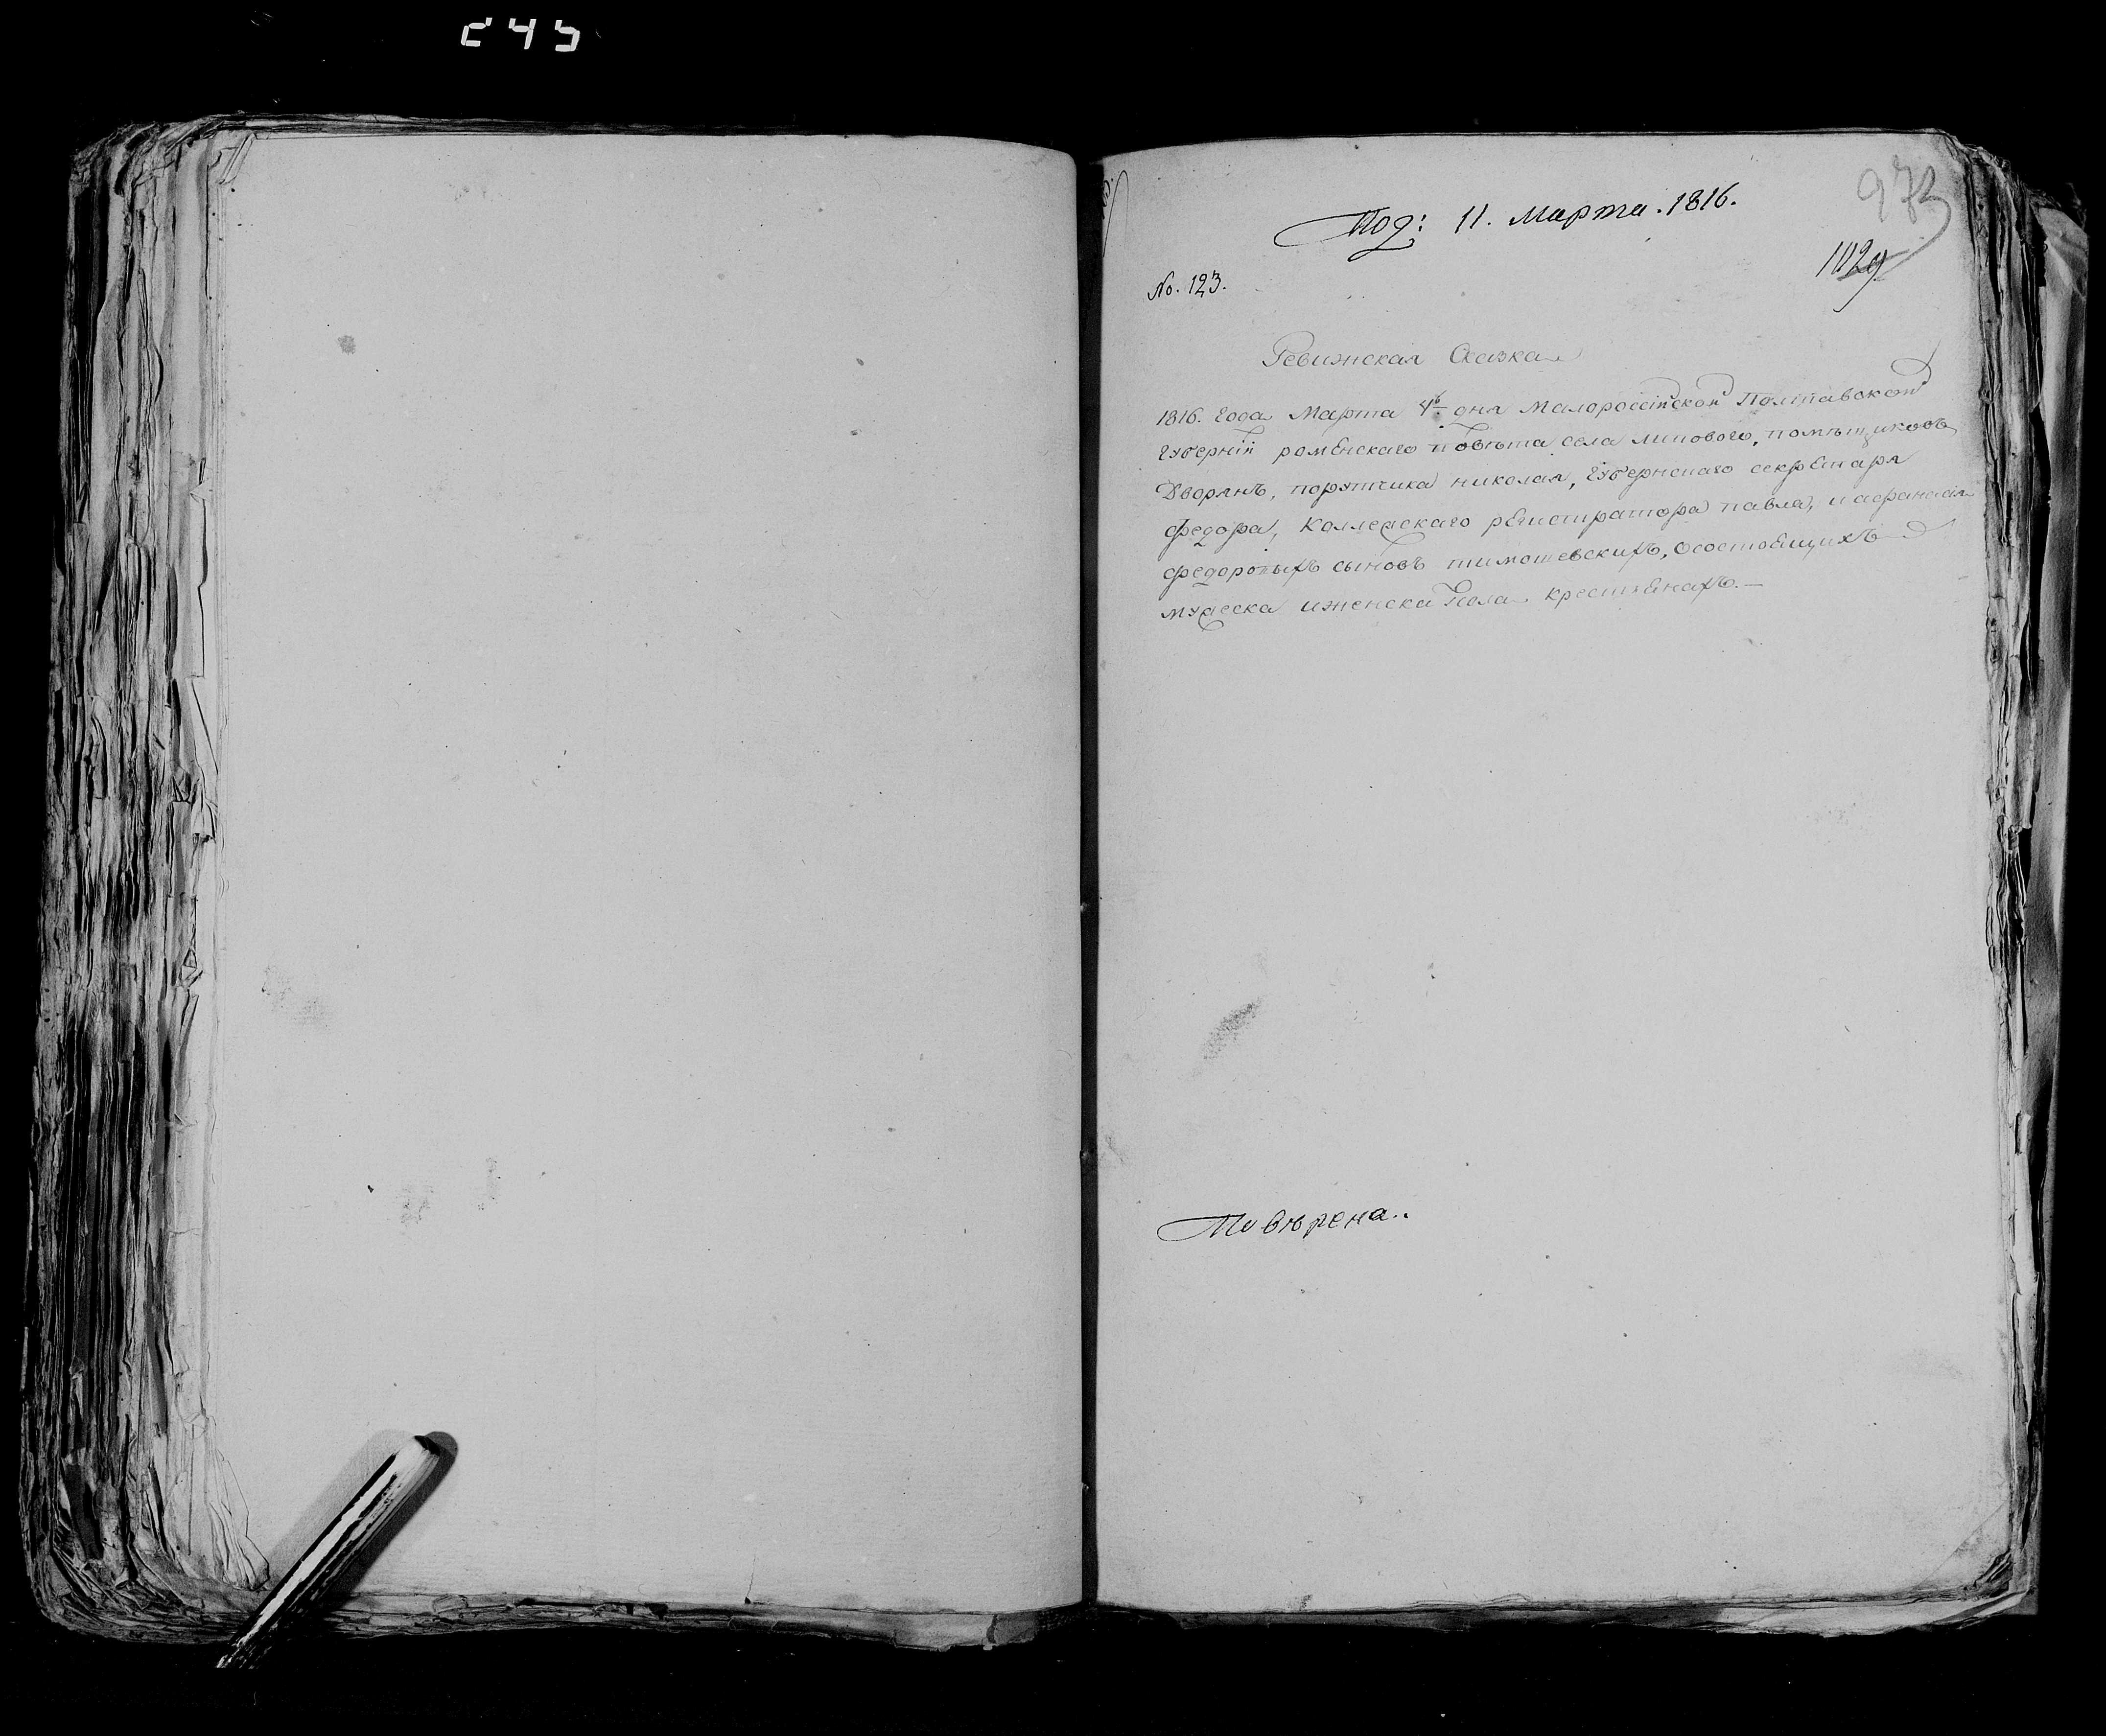 245
973
Под: 11. Марта. 1816.
1029
No. 123.
Ревижская Сказка
1816. Года Марта 4го дня Малороссійской Полтавской
Губерніи роменскаго повѣта села липового, помѣщиковъ
Дворянъ, порутчика николая, Губернскаго секретаря
федора, Коллежскаго регистратора павла, и афанасія
федоровыхъ сыновъ тимошевскихъ, осостоящихъ
мужеска иженска Пола крестьянахъ.—
Повѣрена..